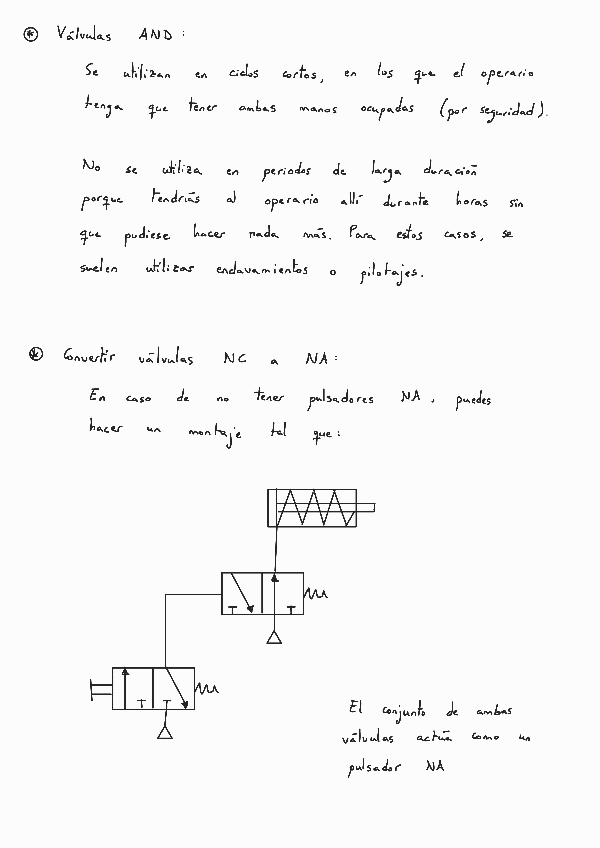 ⊛ Válvulas AND:
Se utilizan en ciclos cortos, en los que el operario
tenga que tener ambas manos ocupadas (por seguridad).
No se utiliza en periodos de larga duración
porque tendrías al operario allí durante horas sin
que pudiese hacer nada más. Para estos casos, se
suelen utilizar enclavamientos o pilotajes.
⊛ Convertir válvulas NC a NA:
En caso de no tener pulsadores NA, puedes
hacer un montaje tal que:
El conjunto de ambas
válvulas actúa como un
pulsador NA